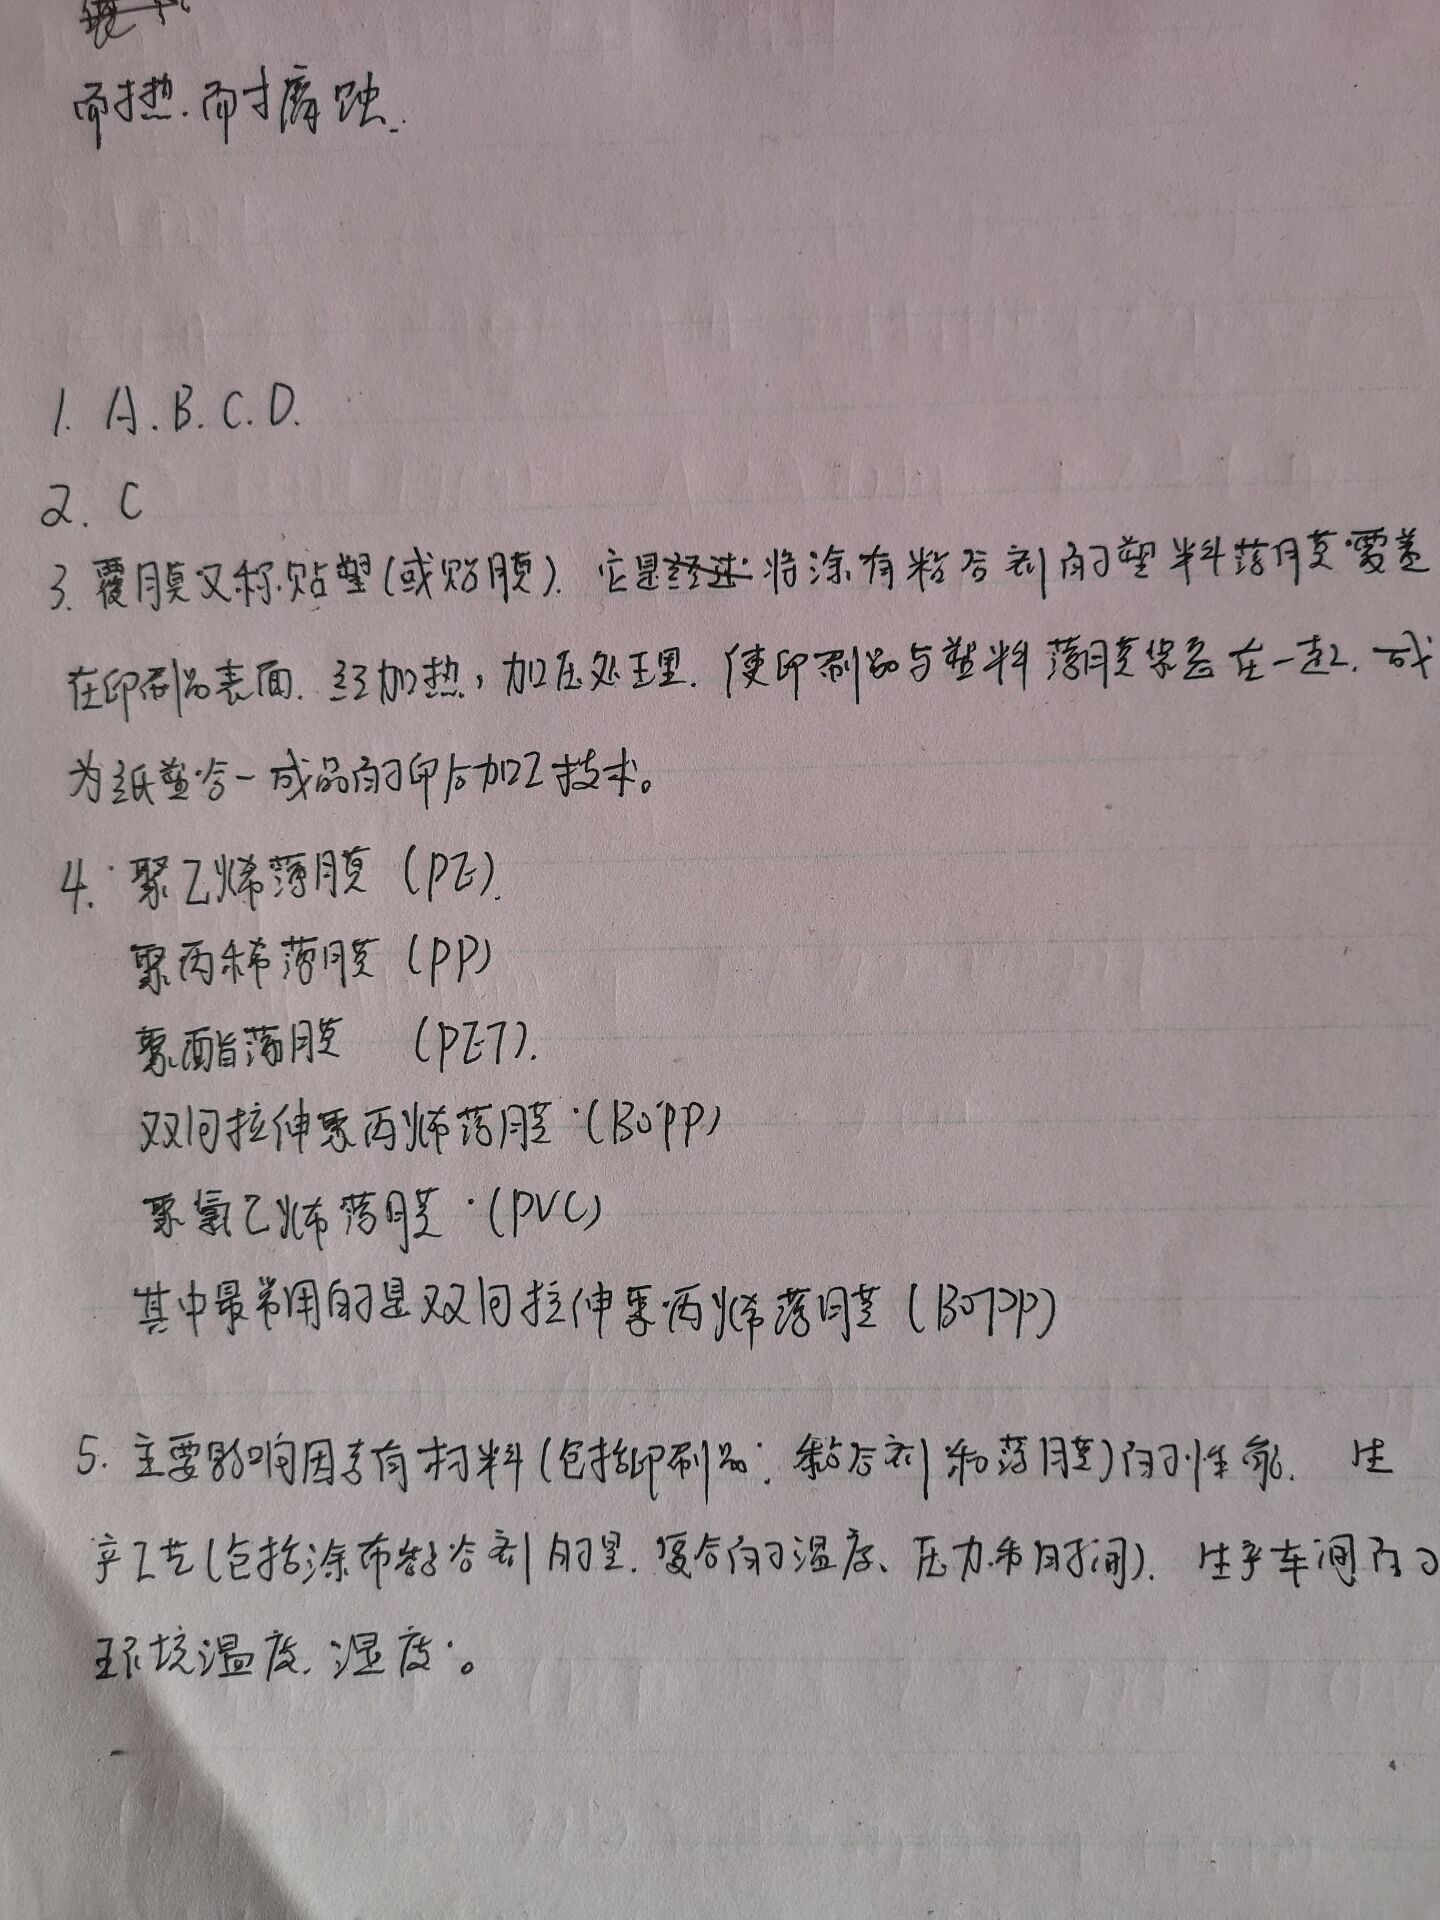 耐热.耐腐蚀.
1. A.B.C.D.
2. C
3. 覆膜又称贴塑(或贴膜). 它是将涂有粘合剂的塑料薄膜覆盖
在印刷品表面. 经加热,加压处理. 使印刷品与塑料薄膜紧密在一起. 成
为纸塑合一成品的印后加工技术。
4. 聚乙烯薄膜 (PE).
聚丙稀薄膜 (PP)
聚酯薄膜 (PET).
双向拉伸聚丙烯薄膜 (BOPP)
聚氯乙烯薄膜 (PVC)
其中最常用的是双向拉伸聚丙烯薄膜 (BOPP)
5. 主要影响因素有材料(包括印刷品、黏合剂和薄膜)的性能. 生
产工艺(包括涂布黏合剂的量. 复合的温度、压力和时间). 生产车间的
环境温度. 湿度。